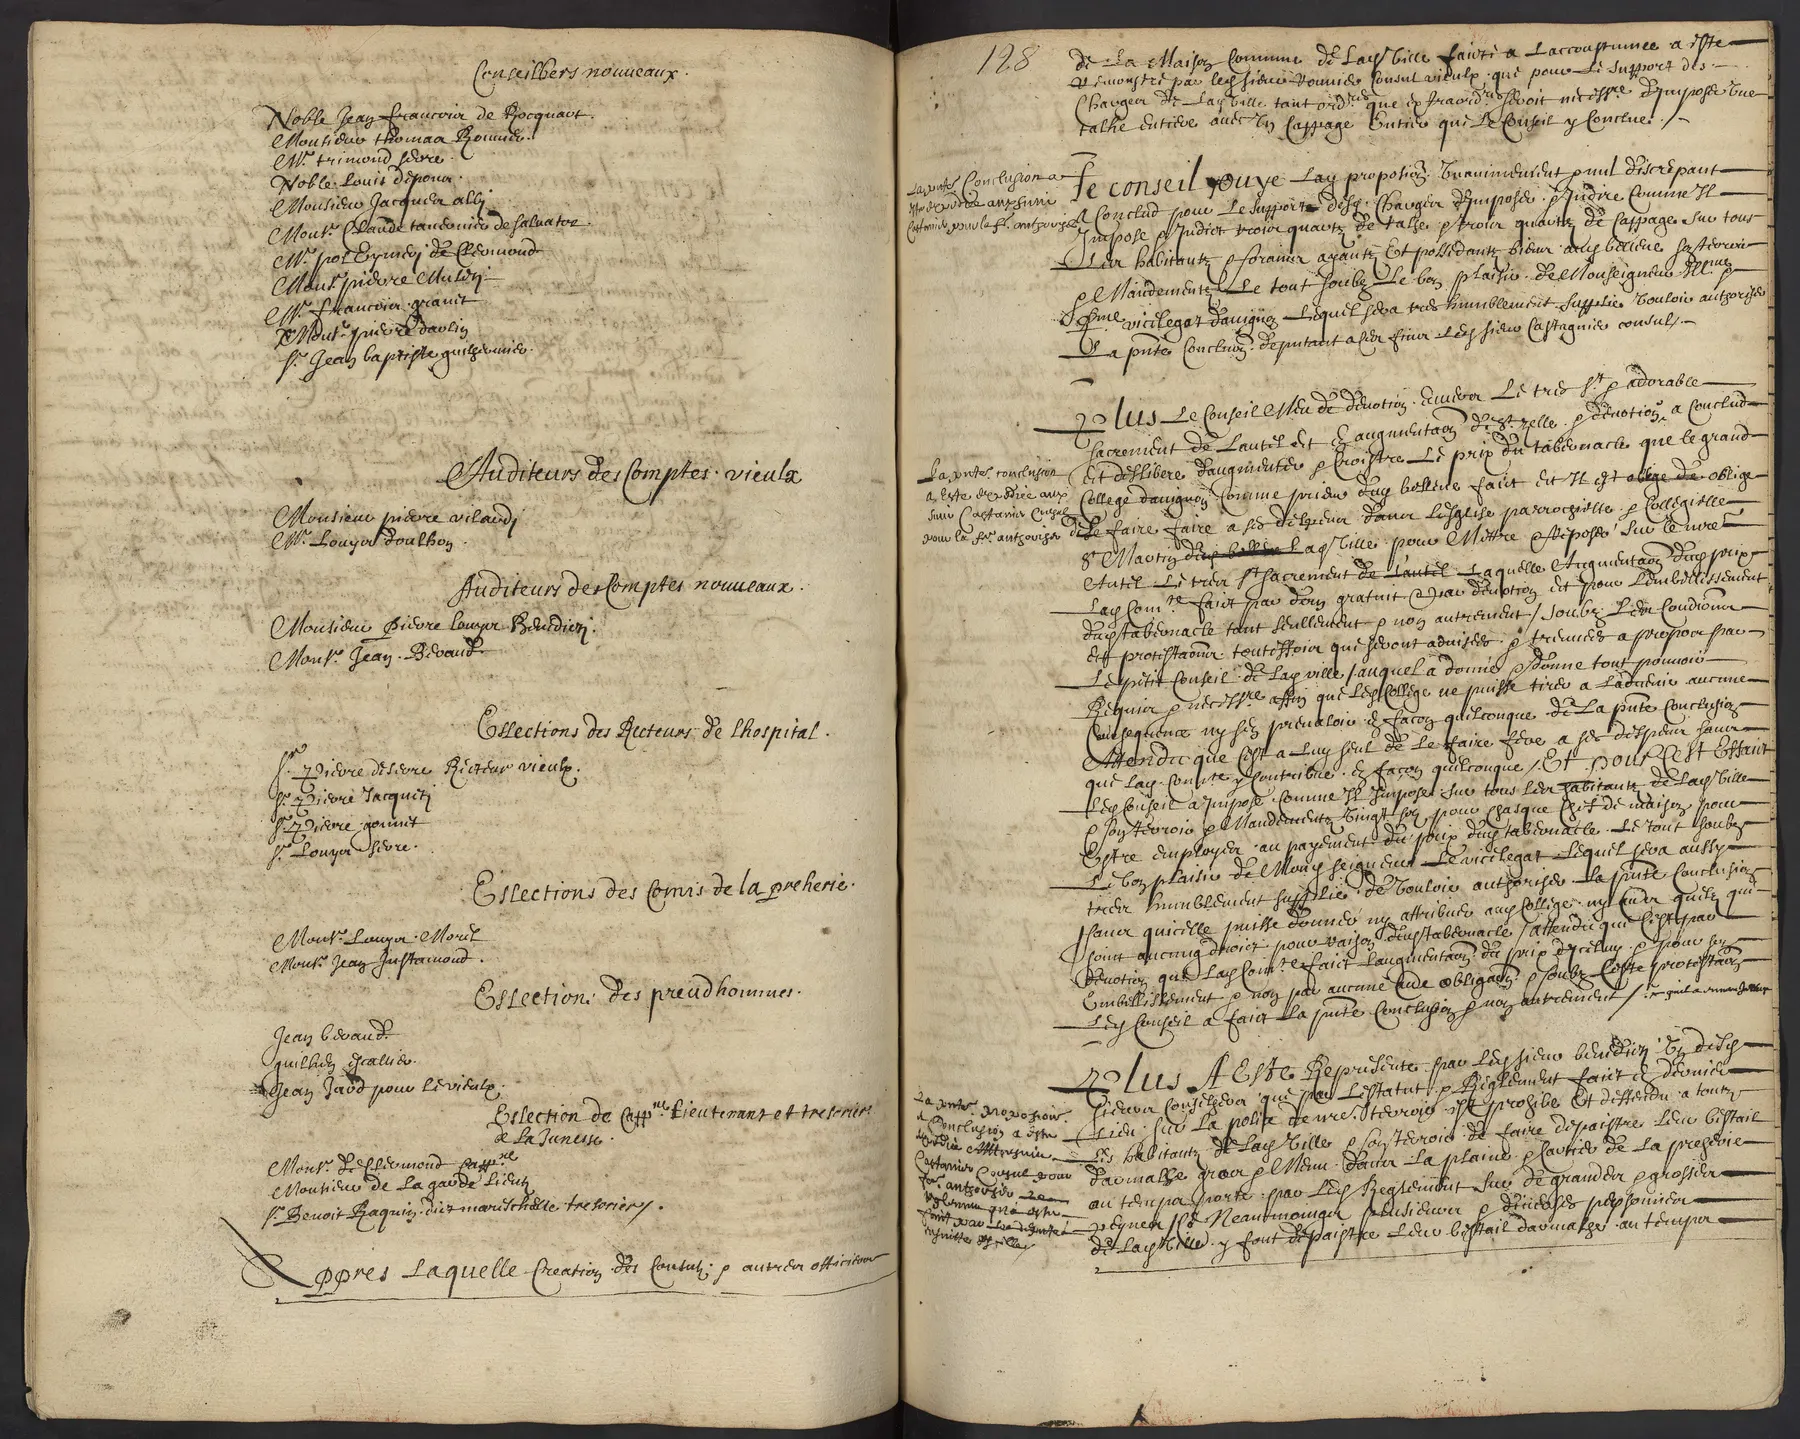 Conseilhers nouveaux.
Noble Jean francois de Rocquart.
Monsieur thomas Rommier.
Mr. trimond serre.
Noble Louis
Monsieur Jacques alli
Monsr. Claude tavernier de salvator.
Mr. pol Eymeri de Clermond
Monsr. pierre
Mr. francois granet
Monsr. pierre
Sr. Jean baptiste guilhermier.
Auditeurs des Comptes vieulx
Monsieur pierre vilardi
Mr. Louys doulhon.
Auditeurs des Comptes nouveaux.
Monsieur pierre louys Benedicti.
Monsr. Jean Beraud
Eslections des Recteurs de lhospital.
Sr. Pierre deserre Recteur vieulx.
Sr. Pierre Jacqueti
Sr. Pierre gonnet
Sr. Louys serre.
Eslections des Comis de la preherie.
Monsr. Louys Morel
Monsr. Jean Justamond.
Eslections des preudhommes.
Jean beraud.
guilhen escallier.
Jean Jard pour le vieulx.
Eslection de Cappne. Lieutenant et tresorier
de La Junesse.
Monsr. de Clermond Cappne
Monsieur de La garde Lieut
Sr. Benoit Raquin dict marischalle tresorier.
Appres Laquelle Creation des Consulz & autres officiers
128
de La Maison Commune de Lad ville faicte a Laccoustumee a este
Remonstré par led sieur Rommier Consul vieulx que pour Le support des
Charges de Lad ville tant ordres que extraordres seroit necessre dimposer une
talhe entiere avec un Cappage entier que Le Conseil y Conclue.
Le conseil ouye Lad proposion Unanimement & nul discrepant
a Conclud pour Le support desd Charges dimposer & Indire Comme Il
Impose & Indict trois quartz de talhe & trois quartz de Cappage sur tous
Les habitantz & forains ayantz Et possedantz biens aud bollene son terroir
& Mandementz Le tout soubz Le bon plaisir de Monseigneur Illme &
Rme vicelegat davignon Lequel sera tres humblement supplié vouloir authoriser
La pnte Conclusion deputant a ses fins Led sieur Castagnier consul.
Lad pnte Conclusion a
esté expediee au sieur
Castanier pour la f. authoriser
Plus Le Conseil Meu de devotion envers Le tres St. & adorable
sacrement de Lautel Et en augmentaon de St. zelle & devotion a Conclud
Et deslibere daugmenter & Croistre Le prix du tabernacle que le grand
College davignon Comme prieur dud bollene faict Et Il est oblige de oblige
de Le faire faire a ses despens dans Lesglise parrochielle & Collegielle
St Martin dud bollene Lad ville pour Mettre & reposer sur le mre
Autel Le tres St sacrement de Lautel Laquelle Augmentaon dud prix
Lad Comte faict par don gratuit & par devotion et pour Lembellissement
dud tabernacle tant seullement & non autrement / soubz Les Condions
Et protestaons toutesfois que seront advisees & treuvees a propos par
Le petit Conseil de Lad ville / auquel a donné & donne tout pouvoir
Requis & necessre affin que Led College ne puisse tirer a Ladvenir aucune
Consequence ny sen prevaloir en facon quelconque de La pnte Conclusion
Attendu que Cest a Luy seul de Le faire fere a ses despens sans
que Lad Comte y Contribue en facon quelconque / Et pour Cest Effaict
Led Conseil a Imposé Comme Il Impose sur tous Les habitantz de Lad ville
& son terroir & Mandementz vingt solz pour chasque Chef de maison pour
Estre employes au payement du prix dud tabernacle Le tout soubz
Le bon plaisir de Mond seigneur Le vicelegat Lequel sera aussy
tres humblement supplié de vouloir authoriser La pnte Conclusion
sans quicelle puisse donner ny attribuer aud College ny autres quelz qui
soint aucung droict pour raison dud tabernacle / attendu que Cest par
devotion que Lad Comte faict Laugmentaon du prix dycelluy & pour son
Embellissement & non par aucune aude obligaon & soubz Ceste protestaon
Led Conseil a faict La pnte Conclusion & non autrement /
La pnte conclusion
a este expediee aux
sieur Castanier Consul
pour la fre authoriser
Plus A Este Representé par Led sieur benedicti Un desd
sieurs Conselhers que par Lestatut & Reglement faict en dernier
Lieu sur La police de nre terroir Est prohibé Et deffendu a toutz
Les habitantz de Lad ville & son terroir de faire depaistre Leur bestail
davmalhe gros & Menu dans La plaine & Cartier de La preherie
au temps porté par Led Reglement sur de grandes & grosses
peynes / Et Neantmoingz plusieurs & diverses personnes
de Lad ville y font depaistre Leur bestail davmalhe au temps
La pnte proposion
& Conclusion a este
expediee
Castanier Consul pour
fre authoriser